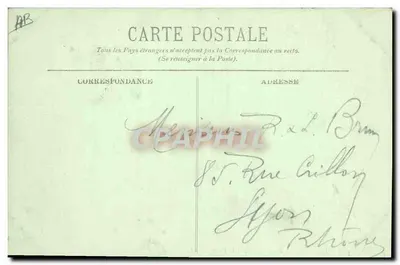 AB
CARTE POSTALE
Tous les Pays étrangers n'acceptent pas la Correspondance au recto.
(Se renseigner à la Poste).
CORRESPONDANCE
ADRESSE
Messieurs R & L Brun
CPAPHIL
85 Rue Crillon
Lyon
Rhône